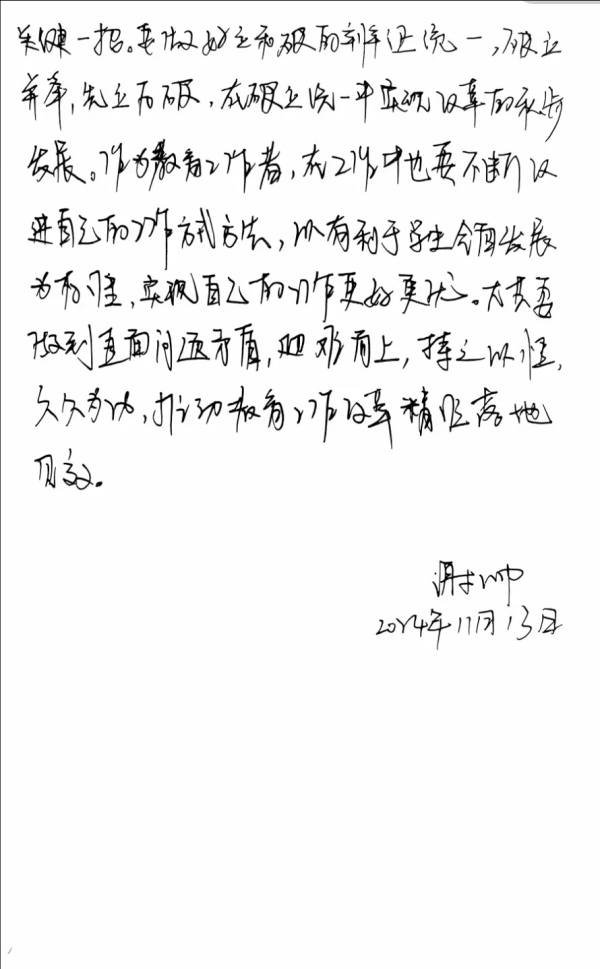 关键一招。要做好立和破的辩证统一，破立
并举，先立后破，在破立统一中实现改革的承步
发展。作为教育工作者，在工作中也要不断改
进自己的工作方式方法，以有利于学生全面发展
为标准，实现自己的工作更好更优。尤其要
做到直面问题矛盾，迎难而上，持之以恒，
久久为功，推动教育工作改革精准落地
见效。
帅
2024年11月13日